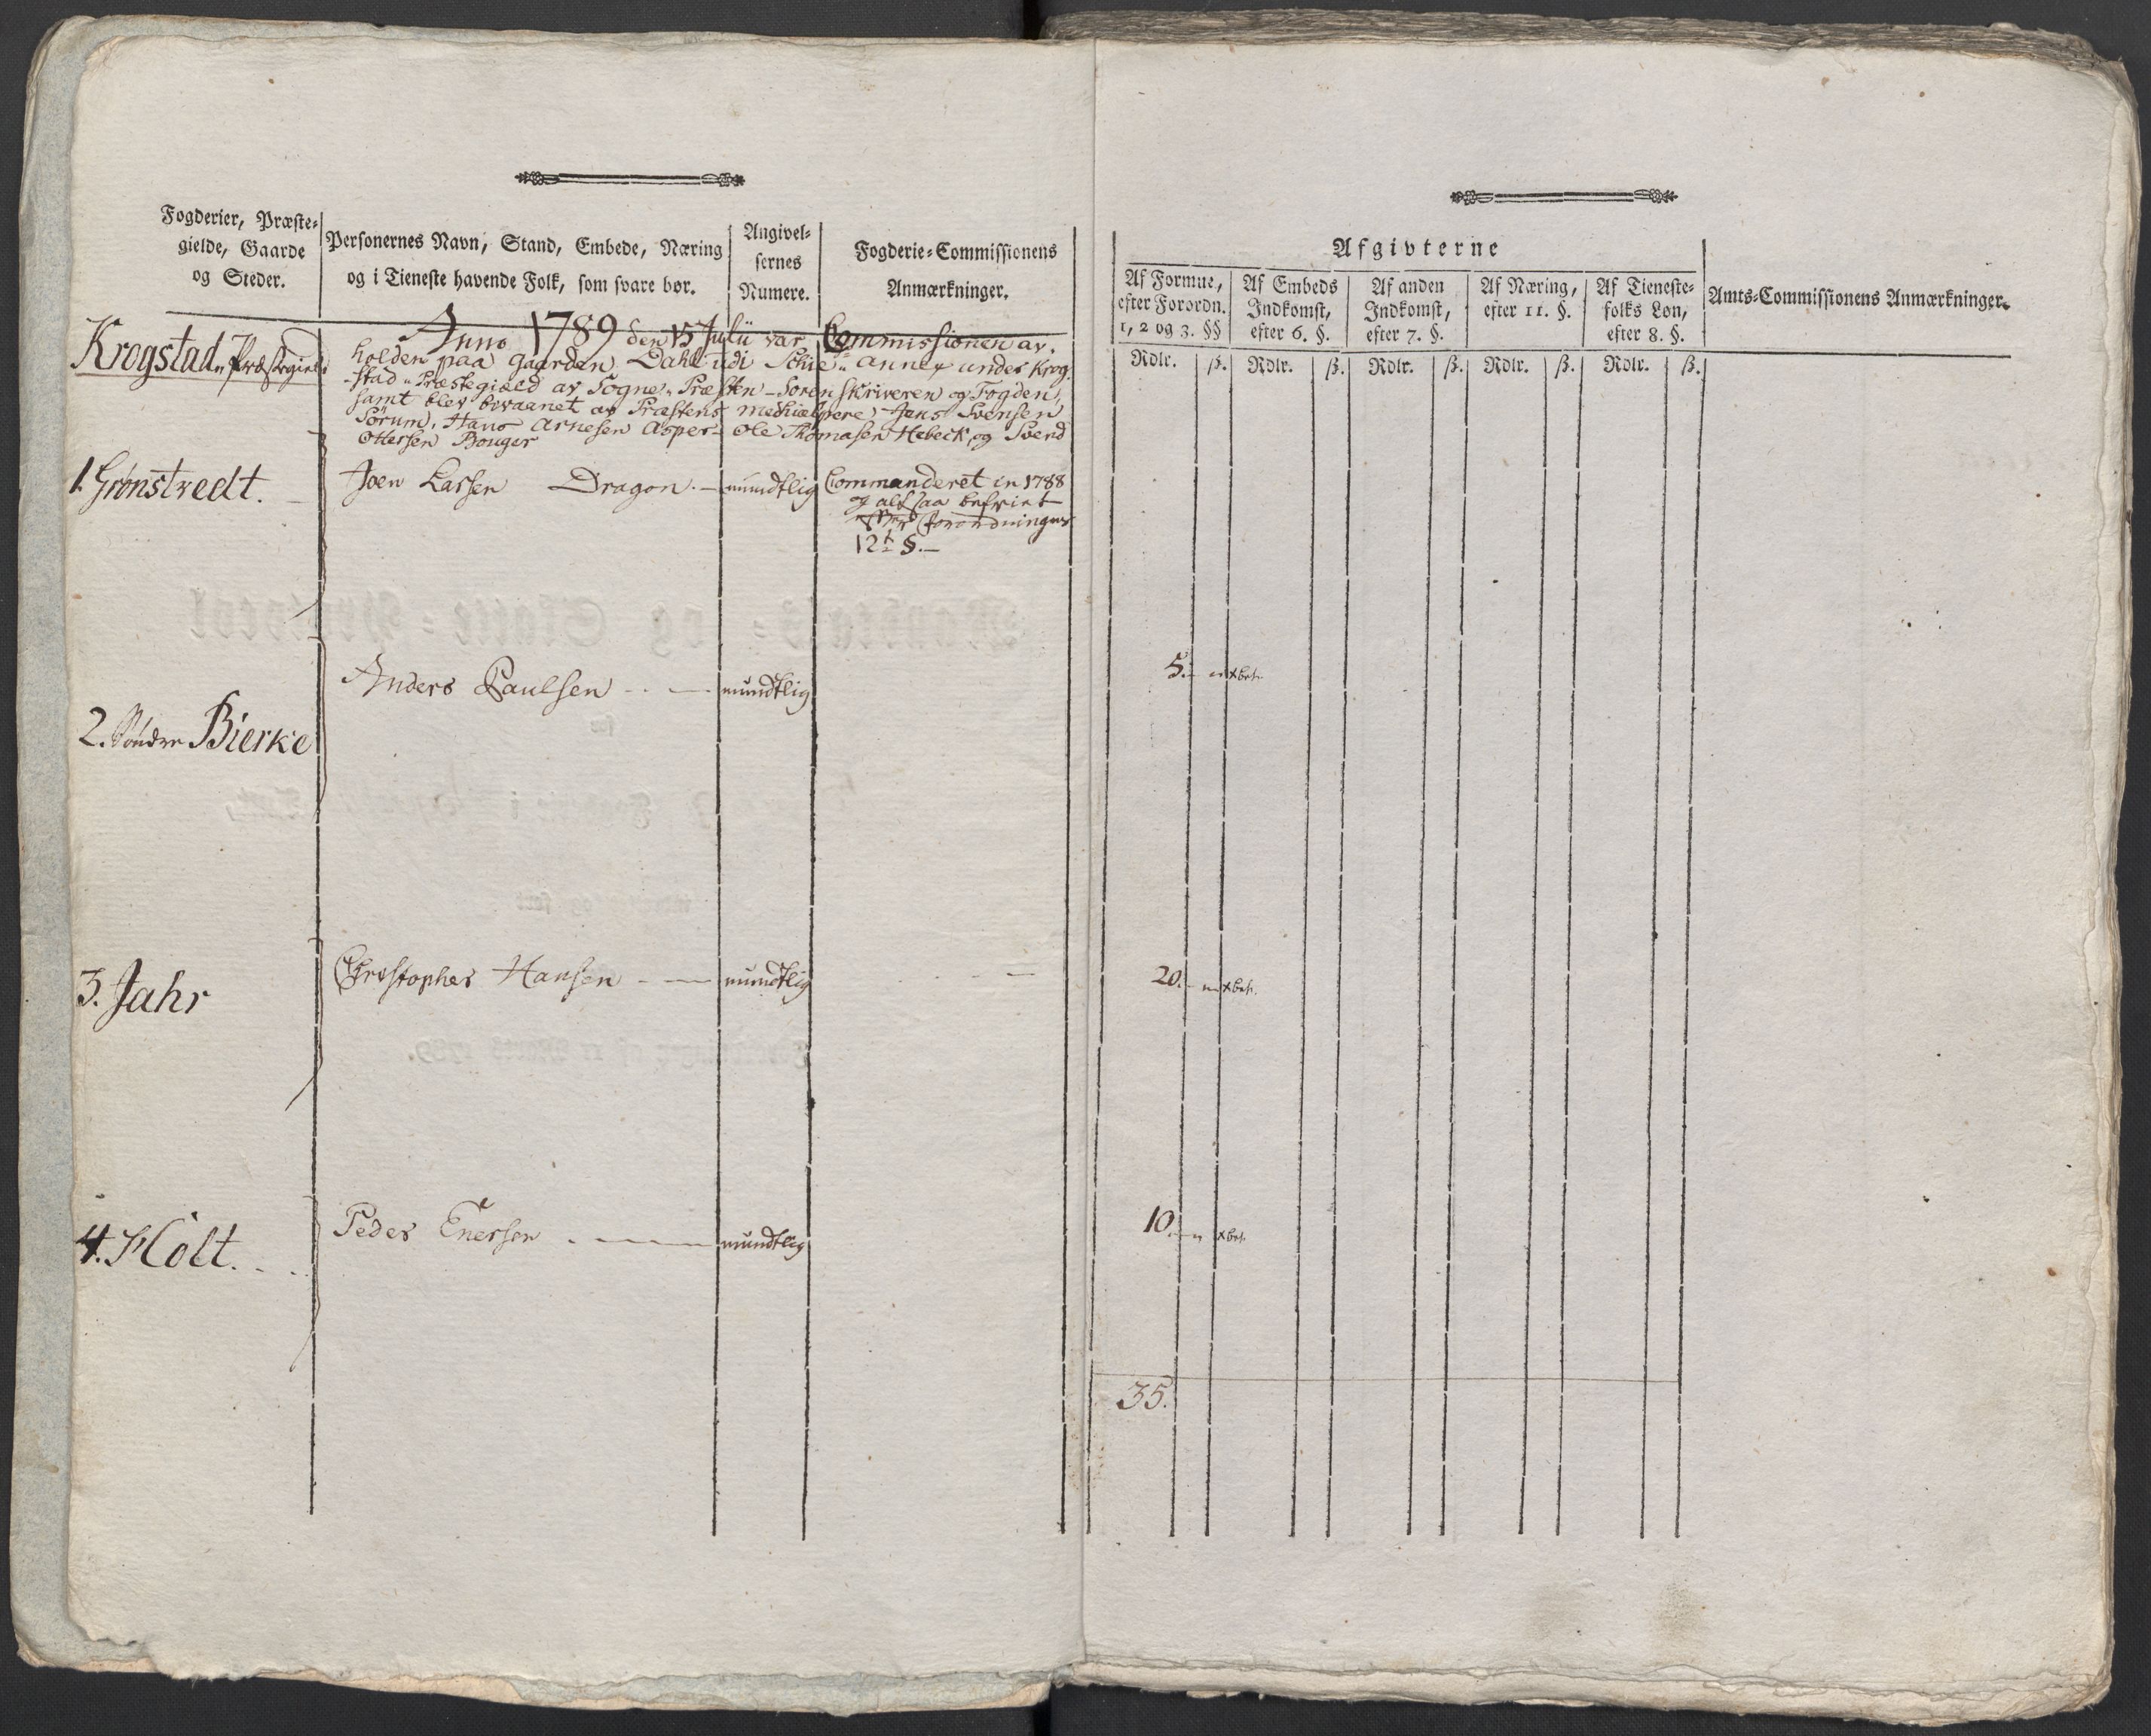 Fogderier, Præste-
gielde, Gaarde
og Steder.
Personernes Navn, Stand, Embede, Næring
og i Tieneste havende Folk, som svare bør.
Angivel-
sernes
Numere.
Fogderie-Commissionens
Anmærkninger.
Krogstad Præstegield
Anno 1789 den 15 Julii var Commissionen av-
holden paa Gaarden Dahl udi Schie annex under Krog-
-stad Præstegiæld av Sogne Præsten - Sorenskriveren og Fogden,
samt blev bivaanet av Præstens medhiælpere, Jens Svensen
Sörum, Hans Arnesen Asper- Ole Thomasen Hebeck, og Svend
Ottersen Bonger
1. Grønstvedt.
Joen Larsen Dragon. - mundtlig
Commanderet in 1788
og altsaa befriet
Forordningens
12te §. -
2. Söndre Bierke
Anders Paulsen - mundtlig
3. Jahr
Christopher Hansen - mundtlig
4. Holt.
Peder Enersen - mundtlig
Afgivterne
Af Formue,
efter Forordn.
1, 2 og 3. §§
Af Embeds
Indkomst,
efter 6. §.
Af anden
Indkomst,
efter 7. §.
Af Næring,
efter 11. §.
Af Tieneste-
folks Løn,
efter 8. §.
Amts-Commissionens Anmærkninger.
Rdlr. ß. Rdlr. ß. Rdlr. ß. Rdlr. ß. Rdlr. ß.
5. - " xbet.
20. - " xbet.
10. - " xbet.
35.